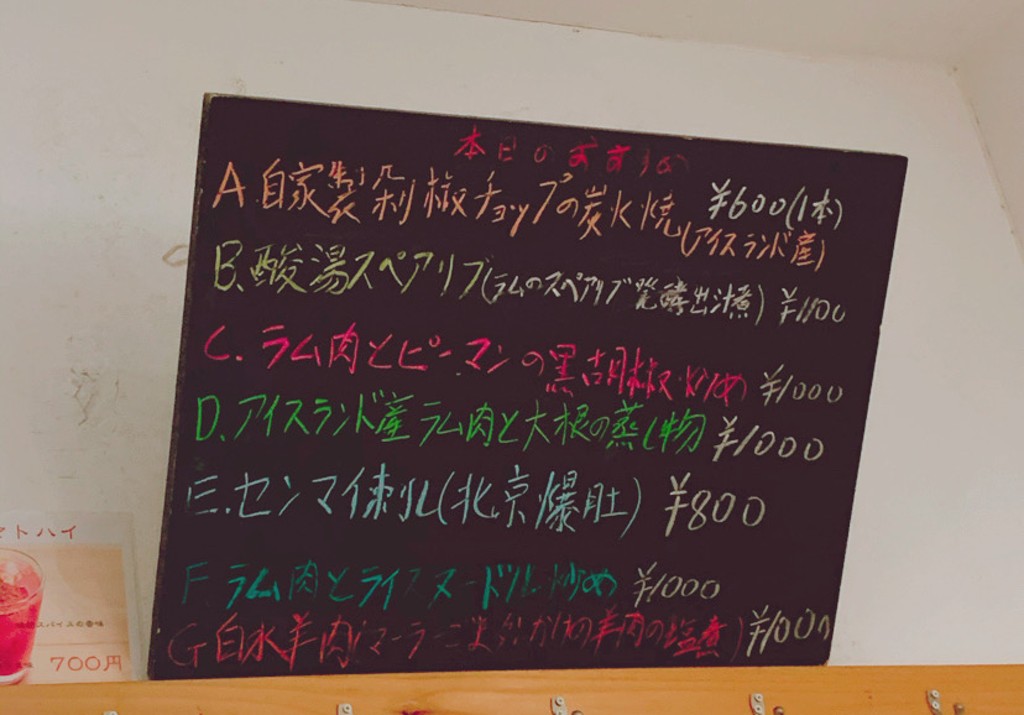 本日のおすすめ
A.自家製剁椒チョップの炭火焼 ¥600(1本)
(アイスランド産)
B.酸湯スペアリブ(ラムのスペアリブ発酵出汁煮) ¥1100
C.ラム肉とピーマンの黒胡椒炒め ¥1000
D.アイスランド産ラム肉と大根の蒸し物 ¥1000
E.センマイ刺し(北京爆肚) ¥800
F.ラム肉とライスヌードル炒め ¥1000
G白水羊肉(マーラーごまダレかけの羊肉の塩煮) ¥1000
マトハイ
スパイスの香味
700円